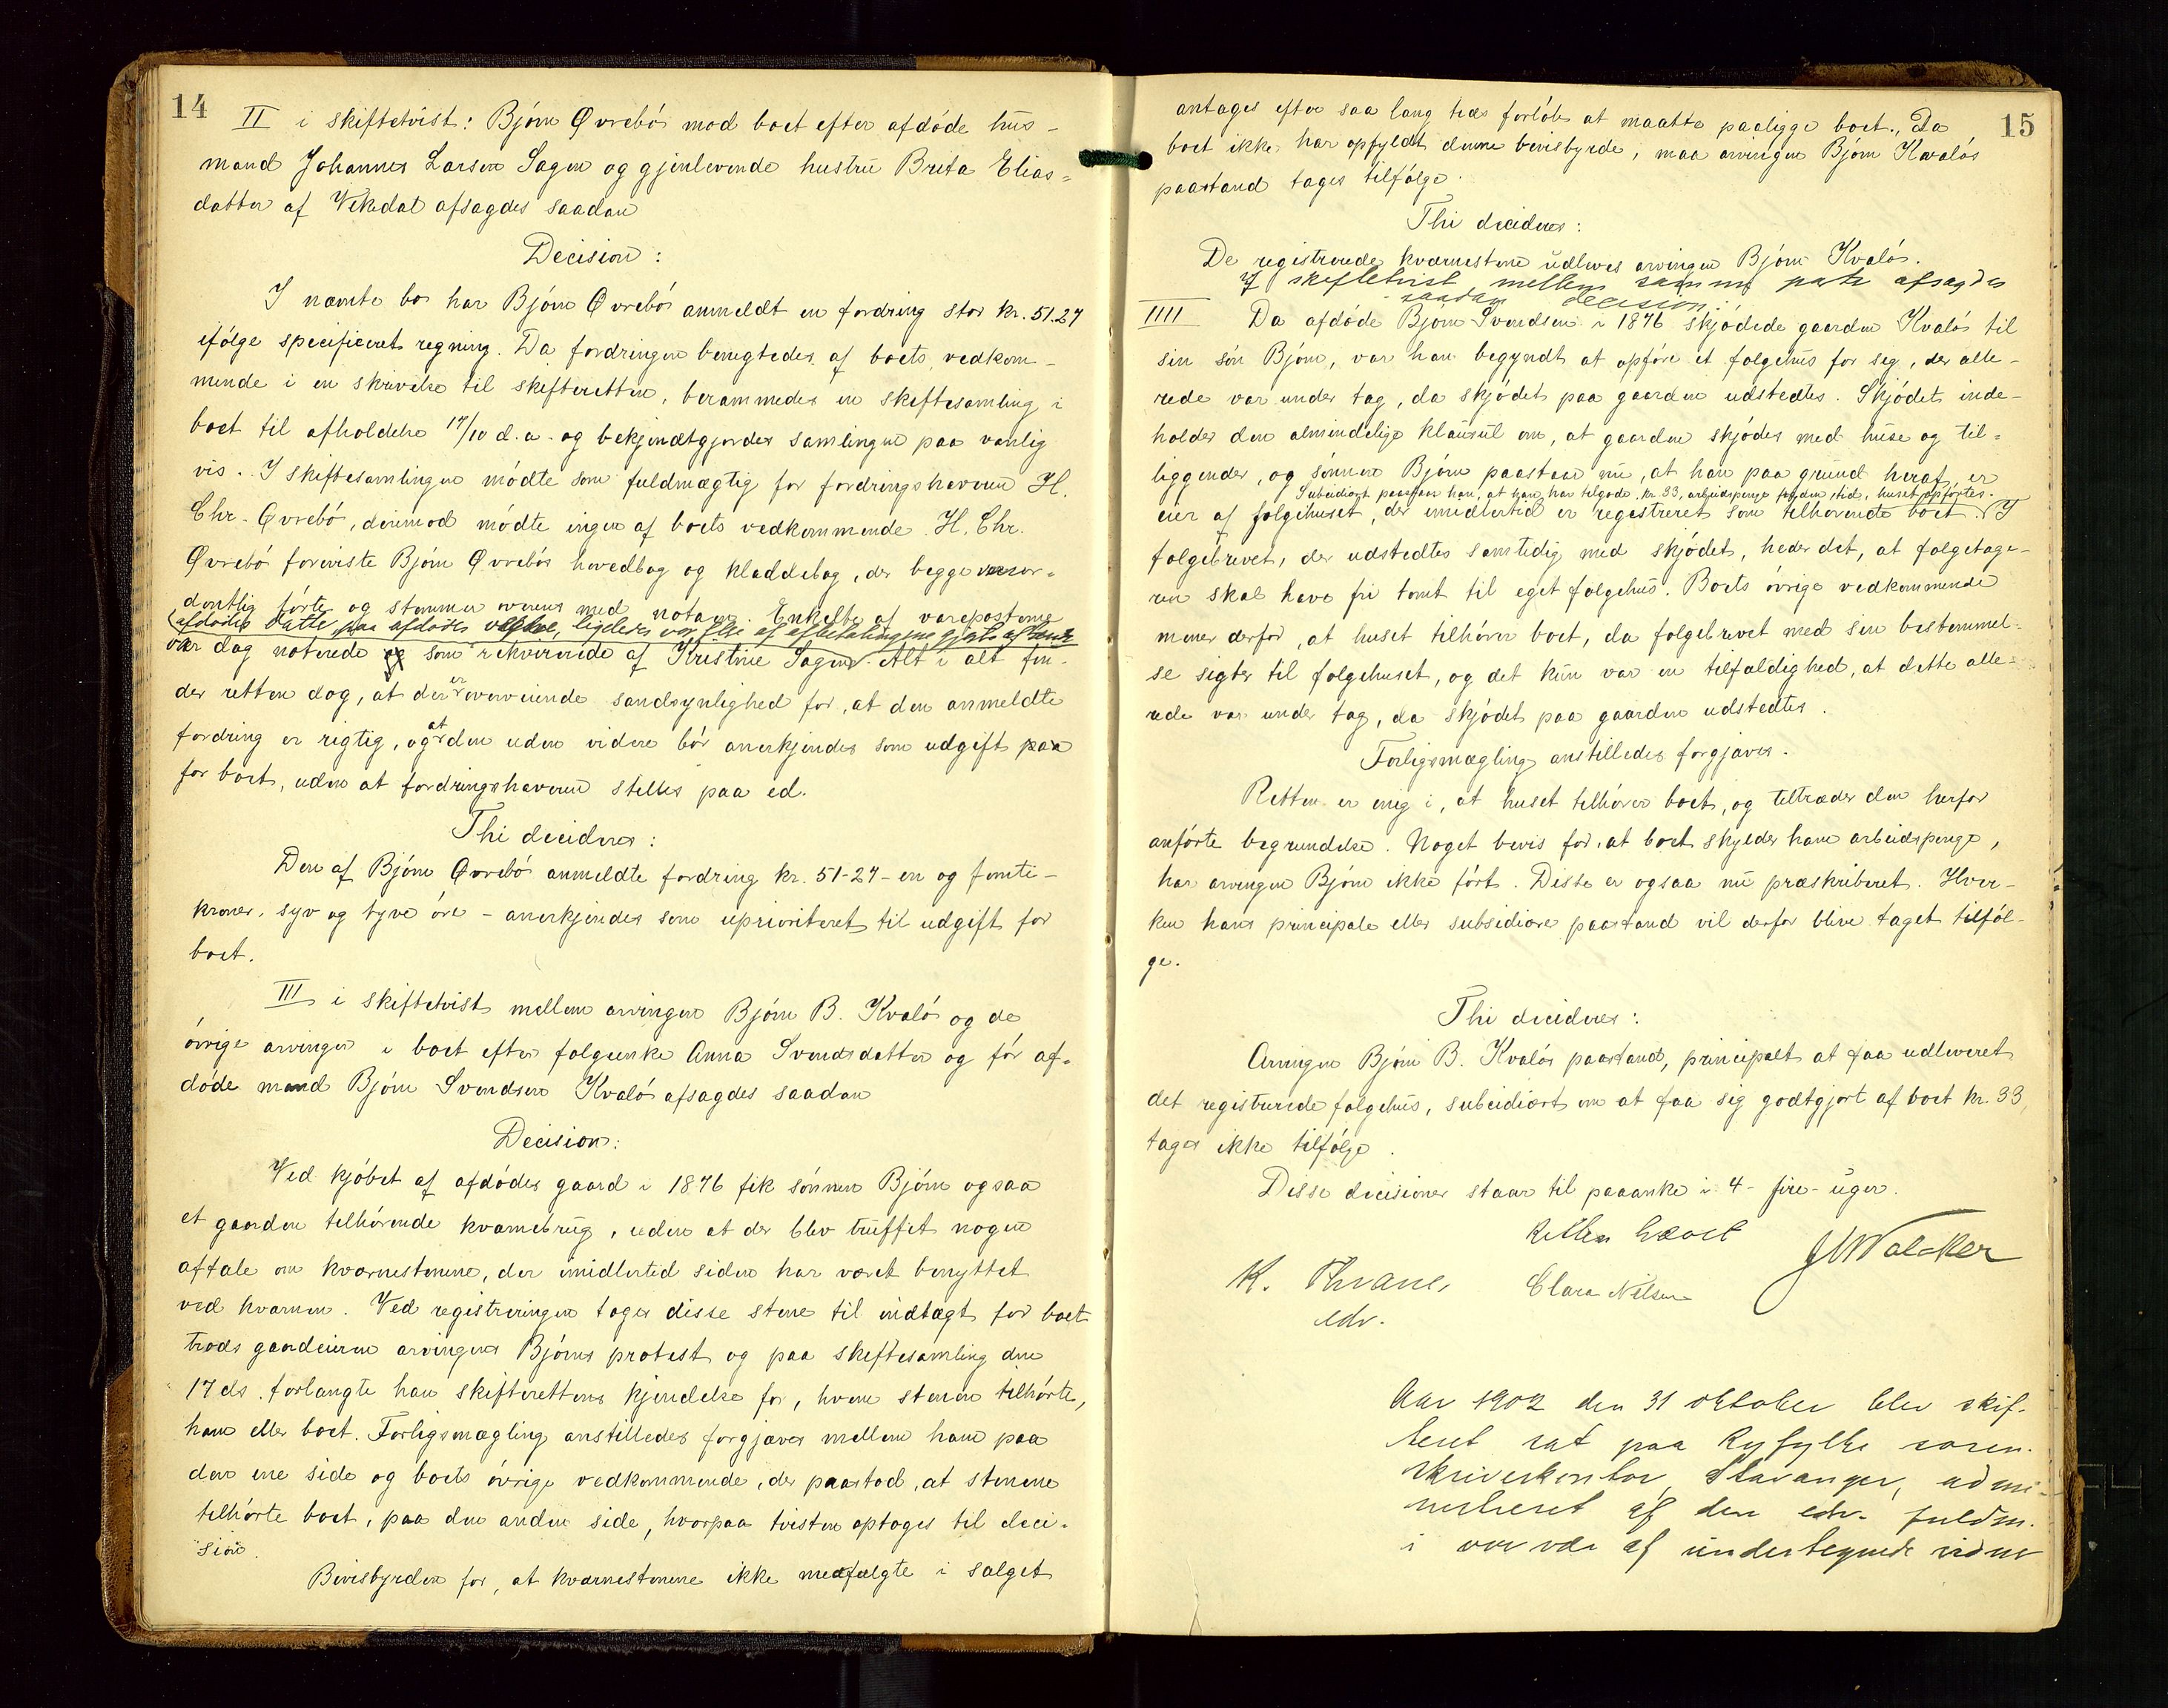 14
II i skiftetvist: Bjórn Qvrebó mod boet efter afdóde hus-
mand Johannes Larsen Sagen og gjenlevende hustru Brita Elias-
datter af Vikedal afsagdes saadan
Decision:
I nævnte bo har Bjórn Qvrebó anmeldt en fordring stor kr. 51.27
ifólge specificeret regning. Da fordringen benegtedes af boets vedkom-
mende i en skrivelse til skifteretten, berammedes en skiftesamling i
boet til afholdelse 17/10 d.a. og bekjendtgjordes samlingen paa vanlig
vis. I skiftesamlingen módte som fuldmægtig for fordringshaveren H.
Chr. Qvrebó, derimod módte ingen af boets vedkommende. H. Chr.
Øvrebó foreviste Bjórn Qvrebós hovedbog og kladdebog, der begge er or-
dentlig fórte og stemmer overens med notaen. Enkelte af vareposterne
afdódes datter paa afdódes vegne, ligeledes var flere af afbetalingerne gjorte af
er dog noterede som rekvirerede af Kristine Sagen. Alt i alt fin-
der retten dog, at der er overveiende sandsynlighed for, at den anmeldte
fordring er rigtig, og at den uden videre bór anerkjendes som udgift
for boet, uden at fordringshaveren stilles paa ed.
Thi decideres:
Den af Bjórn Qvrebó anmeldte fordring kr. 51-27 - en og femti-
kroner, syv og tyve óre - anerkjendes som uprioriteret til udgift for
boet.
III i skiftetvist mellem arvingen Bjórn B. Kvaló og de
óvrige arvinger i boet efter folgeenke Anna Svendsdatter og fór af-
dóde mand Bjórn Svendsen Kvaló afsagdes saadan
Decision:
Ved kjóbet af afdódes gaard i 1876 fik sónnen Bjórn ogsaa
et gaarden tilhórende kvarnebrug, uden at der blev truffet nogen
aftale om kvarnestenene, der imidlertid siden har været benyttet
ved kvarnen. Ved registreringen toges disse stene til indtægt for boet
trods gaardeieren arvingen Bjórns protest og paa skiftesamling den
17 ds. forlangte han skifterettens kjendelse for, hvem stenene tilhórte,
ham eller boet. Forligsmægling anstilledes forgjæves mellem ham paa
den ene side og boets óvrige vedkommende, der paastod, at stenene
tilhórte boet, paa den anden side, hvorpaa tvisten optoges til deci-
sion.
Bevisbyrden for, at kvarnestenene ikke medfulgte i salget
15
antages efter saa lang tids forlób at maatte paaligge boet. Da
boet ikke har opfyldt denne bevisbyrde, maa arvingen Bjórn Kvalós
paastand tages tilfólge.
Thi decideres:
De registrerede kvarnestene udleves arvingen Bjórn Kvaló.
I skiftetvist mellem samme parter afsagdes
saadan decision:
IIII Da afdóde Bjórn Svendsen i 1876 skjódede gaarden Kvaló til
sin són Bjórn, var han begyndt at opfóre et folgehus for seg, der alle-
rede var under tag, da skjódet paa gaarden udstedtes. Skjódet inde-
holder den almindelige klausul om, at gaarden skjódes med huse og til-
liggender, og sónnen Bjórn paastaar nu, at han paa grund heraf er
Subsidiært paastaar han, at han har tilgode kr. 33, arbeidspenge fra den tid, huset opfórtes.
eier af folgehuset, der imidlertid er registreret som tilhórende boet. I
folgebrevet, der udstedtes samtidig med skjódet, heder det, at folgetage-
ren skal have fri tomt til eget folgehus. Boets óvrige vedkommende
mener derfor, at huset tilhórer boet, da folgebrevet med sin bestemmel-
se sigter til folgehuset, og det kun var en tilfældighed, at dette alle-
rede var under tag, da skjódet paa gaarden udstedtes.
Forligsmægling anstilledes forgjæves.
Retten er enig i, at huset tilhórer boet, og tiltræder den herfor
anfórte begrundelse. Noget bevis for, at boet skylder ham arbeidspenge,
har arvingen Bjórn ikke fórt. Disse er ogsaa nu præskriberet. Hver-
ken hans principale eller subsidiære paastand vil derfor blive taget tilfól-
ge.
Thi decideres:
Arvingen Bjórn B. Kvalós paastand, principalt at faa udleveret
det registrerede folgehus, subsidiært om at faa sig godtgjort af boet kr. 33,
tages ikke tilfólge.
Disse decisioner staar til paaanke i 4 - fire - uger.
Retten hævet
K. Thrane,
edv.
Clara Nilsen
J. Walcker
Aar 1902 den 31 oktober blev skif-
teret sat paa Ryfylke soren-
skriverkontor, Stavanger, admi-
nistreret af den edv. fuldm.
i overvær af undertegnede vidner